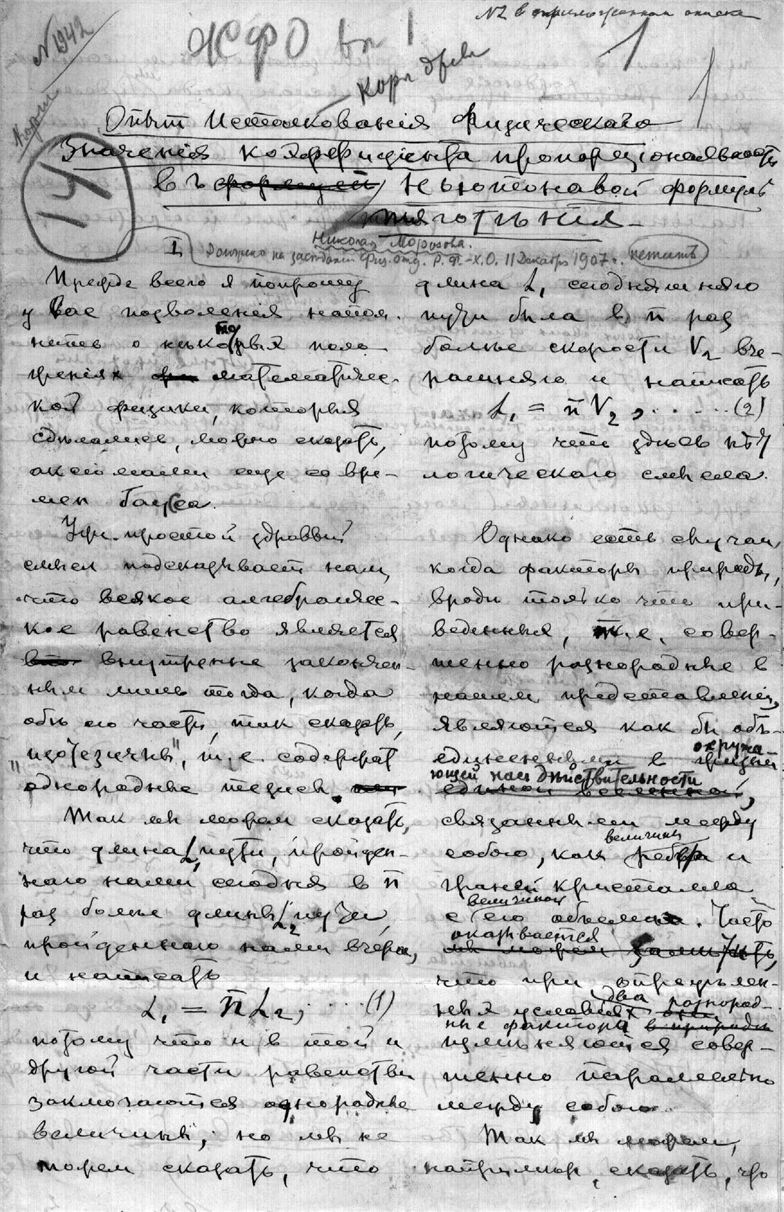 N2 в приложенном списке
N 1942
ЖФО вып 1
1
Корр древ
Опытъ истолкованія физическаго
значенія коэффиціента пропорціональности
въ формулѣ Ньютоновой формулѣ
тяготѣнія.
14
Николая Морозова.
I
Доложено на засѣданіи Физ. отд. Р.Ф.-Х.О. 11 Декабря 1907 г.
петитъ
Прежде всего я попрошу
у Вас позволенія напом-
нить о нѣкоторых поло-
женіях математичес-
кой физики, которыя
сдѣлались, можно сказать,
аксіомами еще со вре-
мен Гаусса.
Уже простой здравый
смысл подсказывает нам,
что всякое алгебраичес-
кое равенство является
внутренне закончен-
ным лишь тогда, когда
обѣ его части, так сказать,
"изотезичны", т. е. содержат
однородные тезисы.
Так мы можем сказать,
что длина L₁ пути, пройден-
наго нами сегодня в n
раз больше длины L₂ пути,
пройденнаго нами вчера,
и написать
L₁ = n L₂, . . . . (1)
потому что и в той и
другой части равенства
заключаются однородные
величины; но мы не
можем сказать, что
длина L₁ сегодняшняго
пути была в n раз
больше скорости V₂ вче-
рашняго и написать
L₁ = n V₂, . . . . . (2)
потому что здѣсь нѣт
логическаго смысла.
Однако есть случаи,
когда факторы природы,
вродѣ только что при-
веденных, т. е. совер-
шенно разнородные в
нашем представленіи,
являются как бы объ-
единенными в окружа-
ющей нас дѣйствительности
единой вселенной,
связанными между
собою, как величины ребра и
граней кристалла
с величиной его объема. Часто
оказывается
мы можем замѣтить,
что при опредѣлен-
ных условіях два разнород-
ные фактора в природѣ
измѣняются совер-
шенно параллельно
между собою.
Так мы можем,
напримѣр, сказать, что